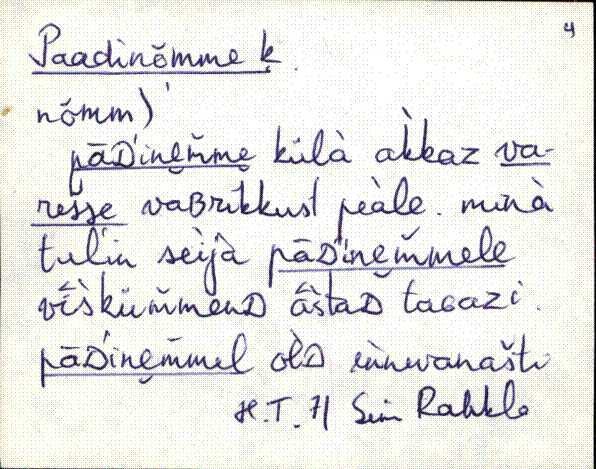 4
Paadinõmme k.
nõmm)
pāᴅ́inem̆me külà ak̀kaz va-
resse vaʙrikkust peàle. minà
tuĺin seijà pāᴅ́inem̆mele
vîsküm̆menᴅ âstaᴅ taɢazi.
pāᴅ́inem̆mel olᴅ ennevanašti
H.T. 71 Simi Rahkla